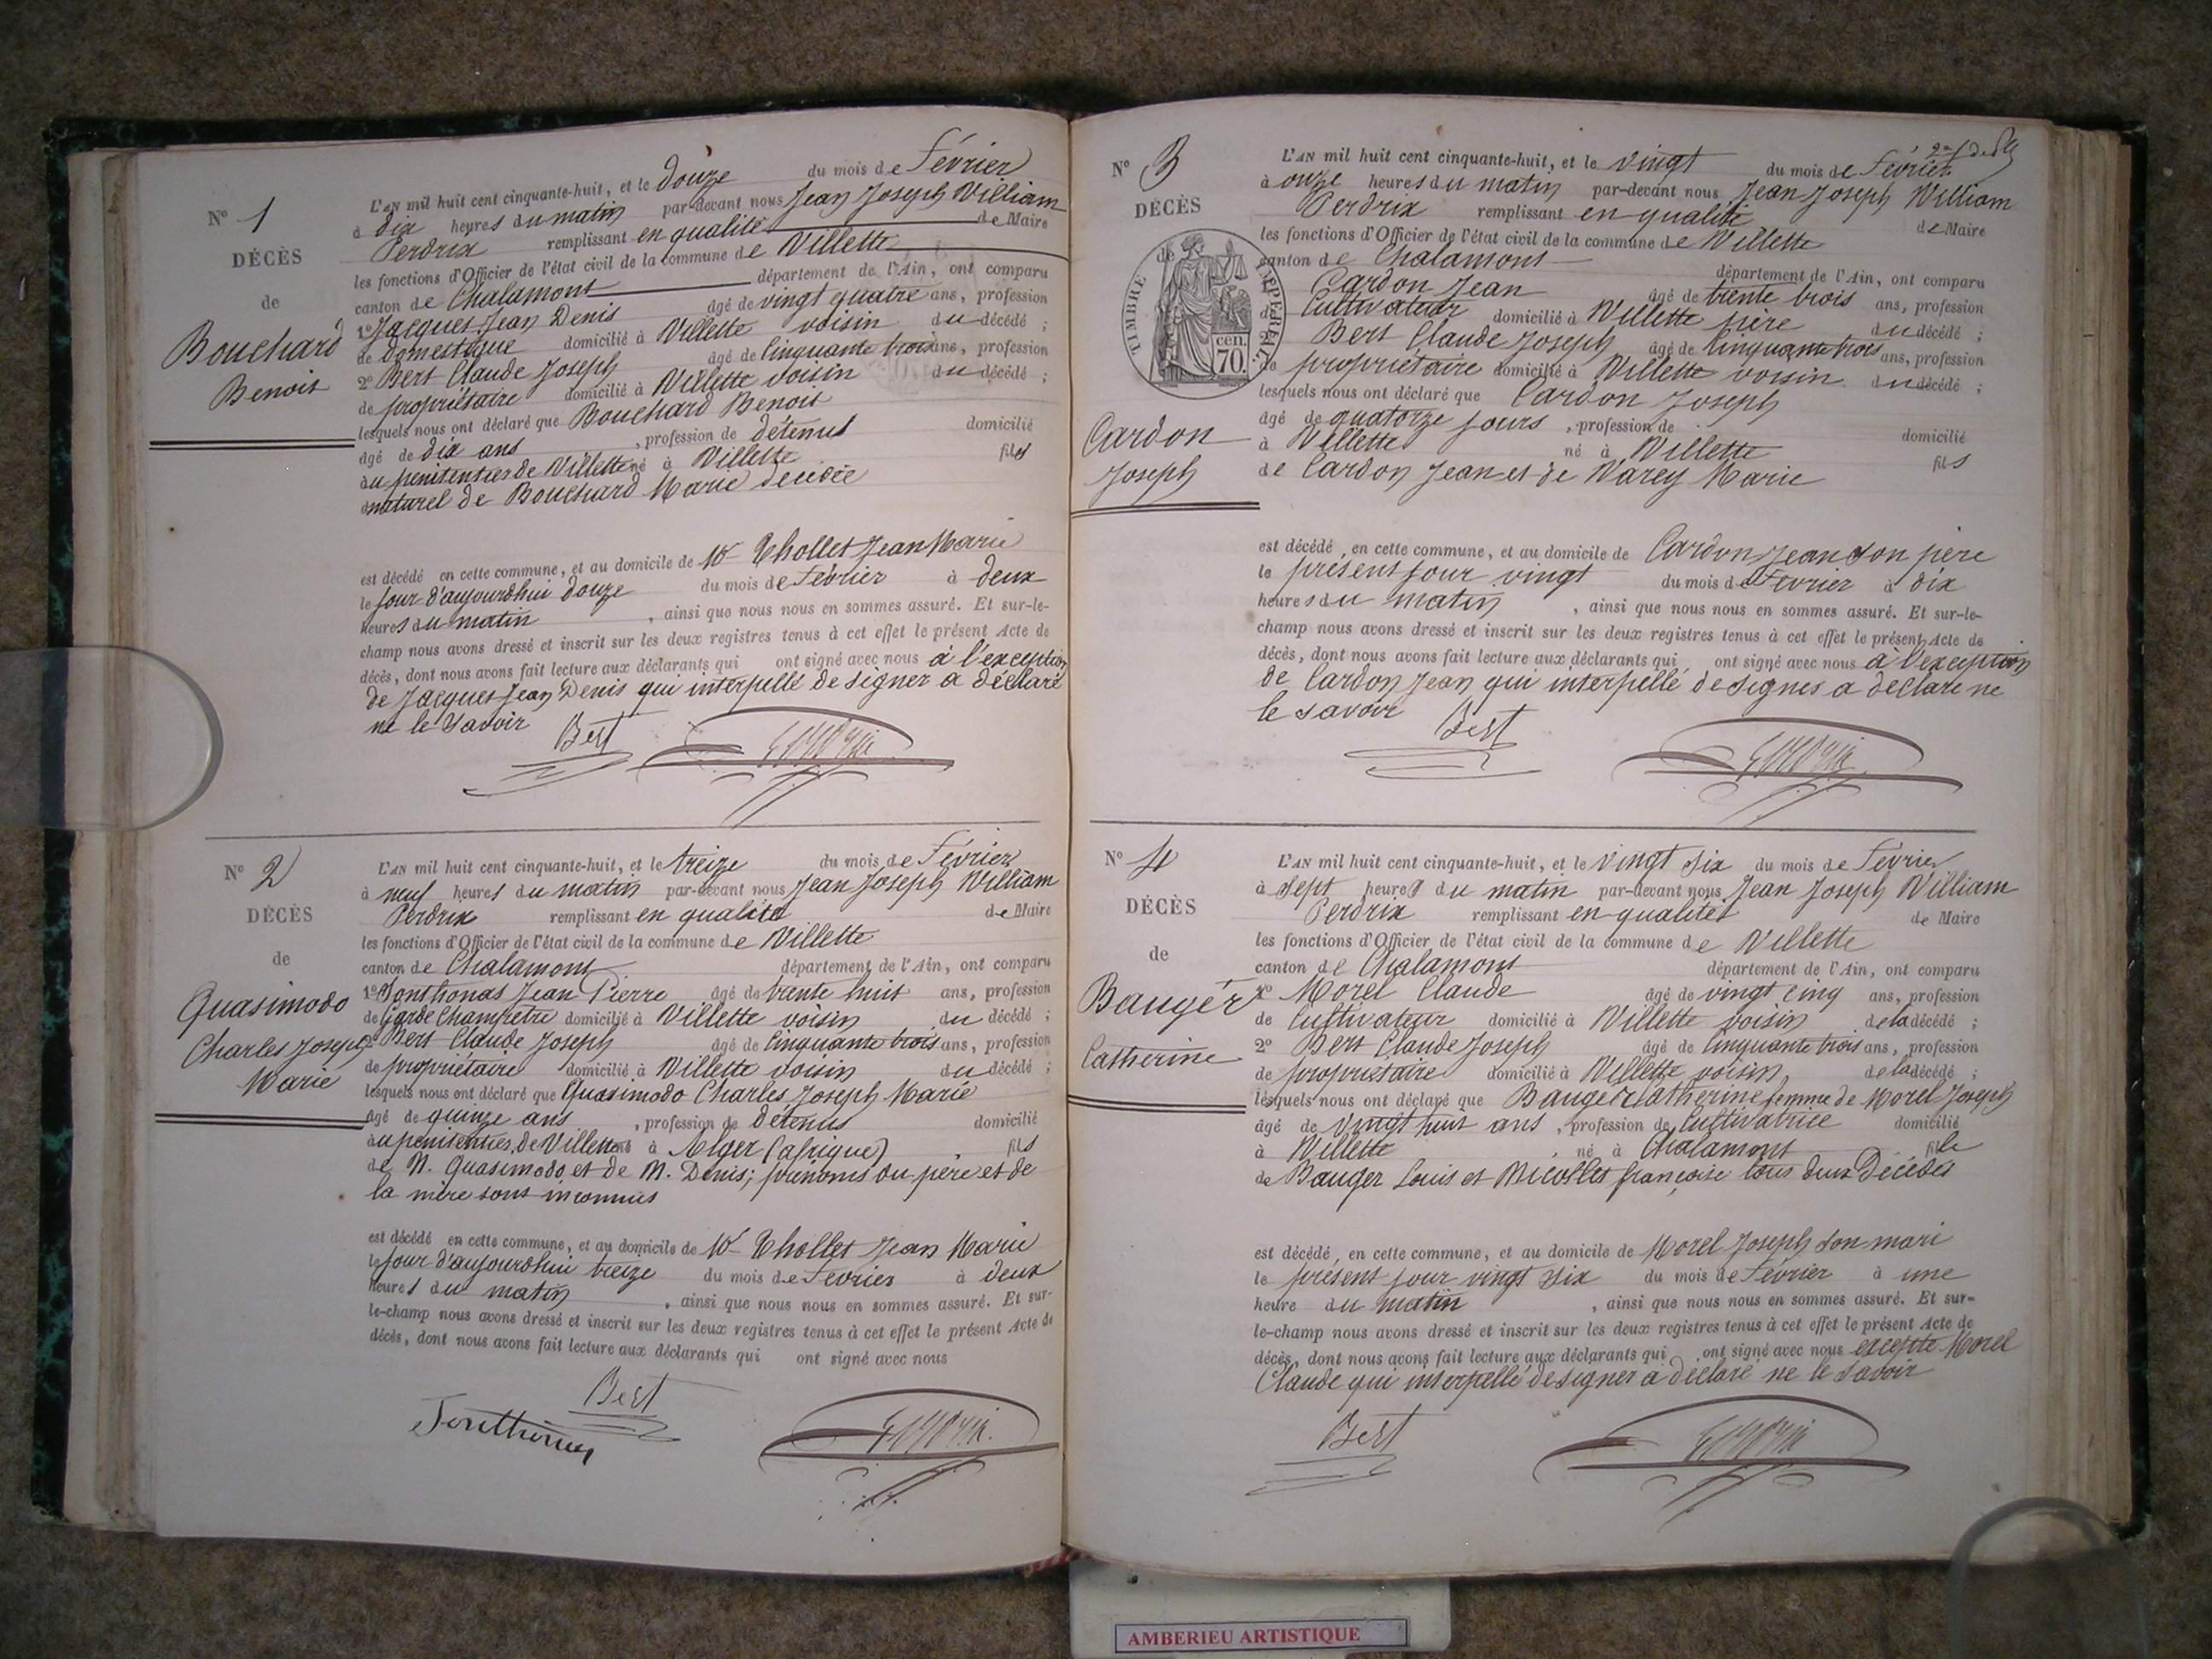 N° 1
DÉCÈS
de
Bouchard
Benoit
L'AN mil huit cent cinquante-huit, et le Douze du mois de Février
à dix heures du matin par-devant nous Jean Joseph William
Perdrix remplissant en qualité de Maire
les fonctions d'Officier de l'état civil de la commune de Villette
canton de Chalamont département de l'Ain, ont comparu
1° Jacques Jean Denis âgé de vingt quatre ans, profession
de domestique domicilié à Villette voisin du décédé ;
2° Bert Claude Joseph âgé de Cinquante trois ans, profession
de propriétaire domicilié à Villette voisin du décédé ;
lesquels nous ont déclaré que Bouchard Benoit
âgé de dix ans , profession de détenus domicilié
au penitentier de Villette né à Villette fils
naturel de Bouchard Marie décédée
est décédé en cette commune, et au domicile de Mr Chollet Jean Marie
le jour d'aujourdhui douze du mois de Février à deux
heures du matin , ainsi que nous nous en sommes assuré. Et sur-le-
champ nous avons dressé et inscrit sur les deux registres tenus à cet effet le présent Acte de
décès, dont nous avons fait lecture aux déclarants qui ont signé avec nous à l'exception
de Jacques Jean Denis qui interpellé de signer a déclaré
ne le savoir
Bert Perdrix
N° 2
DÉCÈS
de
Quasimodo
Charles Joseph
Marie
L'AN mil huit cent cinquante-huit, et le treize du mois de Février
à neuf heures du matin par-devant nous Jean Joseph William
Perdrix remplissant en qualité de Maire
les fonctions d'Officier de l'état civil de la commune de Villette
canton de Chalamont département de l'Ain, ont comparu
1° Jonthonas Jean Pierre âgé de trente huit ans, profession
de Garde Champetre domicilié à Villette voisin du décédé ;
2° Bert Claude Joseph âgé de Cinquante trois ans, profession
de propriétaire domicilié à Villette voisin du décédé ;
lesquels nous ont déclaré que Quasimodo Charles Joseph Marie
âgé de quinze ans , profession de détenus domicilié
au penitentier de Villette né à Alger (afrique) fils
de N. Quasimodo et de N. Denis; prénoms du père et de
la mère sont inconnus
est décédé en cette commune, et au domicile de Mr Chollet Jean Marie
le jour d'aujourdhui treize du mois de Février à deux
heures du matin , ainsi que nous nous en sommes assuré. Et sur-
le-champ nous avons dressé et inscrit sur les deux registres tenus à cet effet le présent Acte de
décès, dont nous avons fait lecture aux déclarants qui ont signé avec nous
Bert
Perdrix
N° 3
DÉCÈS
de
TIMBRE IMPÉRIAL
70 cen.
Cardon
Joseph
L'AN mil huit cent cinquante-huit, et le vingt du mois de Février
à onze heures du matin par-devant nous Jean Joseph William
Perdrix remplissant en qualité de Maire
les fonctions d'Officier de l'état civil de la commune de Villette
canton de Chalamont département de l'Ain, ont comparu
Cardon Jean âgé de trente trois ans, profession
de Cultivateur domicilié à Villette père du décédé ;
2° Bert Claude Joseph âgé de Cinquante trois ans, profession
de propriétaire domicilié à Villette voisin du décédé ;
lesquels nous ont déclaré que Cardon Joseph
âgé de quatorze jours , profession de domicilié
à Villette né à Villette fils
de Cardon Jean et de Varey Marie
est décédé en cette commune, et au domicile de Cardon Jean son père
le présent jour vingt du mois de Février à dix
heures du matin , ainsi que nous nous en sommes assuré. Et sur-le-
champ nous avons dressé et inscrit sur les deux registres tenus à cet effet le présent Acte de
décès, dont nous avons fait lecture aux déclarants qui ont signé avec nous à l'exception
de Cardon Jean qui interpellé de signer a déclaré ne
le savoir
Bert Perdrix
N° 4
DÉCÈS
de
Bauger
Catherine
L'AN mil huit cent cinquante-huit, et le vingt six du mois de Février
à sept heures du matin par-devant nous Jean Joseph William
Perdrix remplissant en qualité de Maire
les fonctions d'Officier de l'état civil de la commune de Villette
canton de Chalamont département de l'Ain, ont comparu
1° Morel Claude âgé de vingt cinq ans, profession
de Cultivateur domicilié à Villette voisin de la décédé ;
2° Bert Claude Joseph âgé de Cinquante trois ans, profession
de propriétaire domicilié à Villette voisin de la décédé ;
lesquels nous ont déclaré que Bauger Catherine femme de Morel Joseph
âgé de vingt huit ans , profession de Cultivatrice domicilié
à Villette né à Chalamont fille
de Bauger Louis et Nicollet françoise tous deux Décédés
est décédé en cette commune, et au domicile de Morel Joseph son mari
le présent jour vingt six du mois de Février à une
heure du matin , ainsi que nous nous en sommes assuré. Et sur-
le-champ nous avons dressé et inscrit sur les deux registres tenus à cet effet le présent Acte de
décès, dont nous avons fait lecture aux déclarants qui ont signé avec nous excepté Morel
Claude qui interpellé de signer a déclaré ne le savoir
Bert Perdrix
AMBERIEU ARTISTIQUE